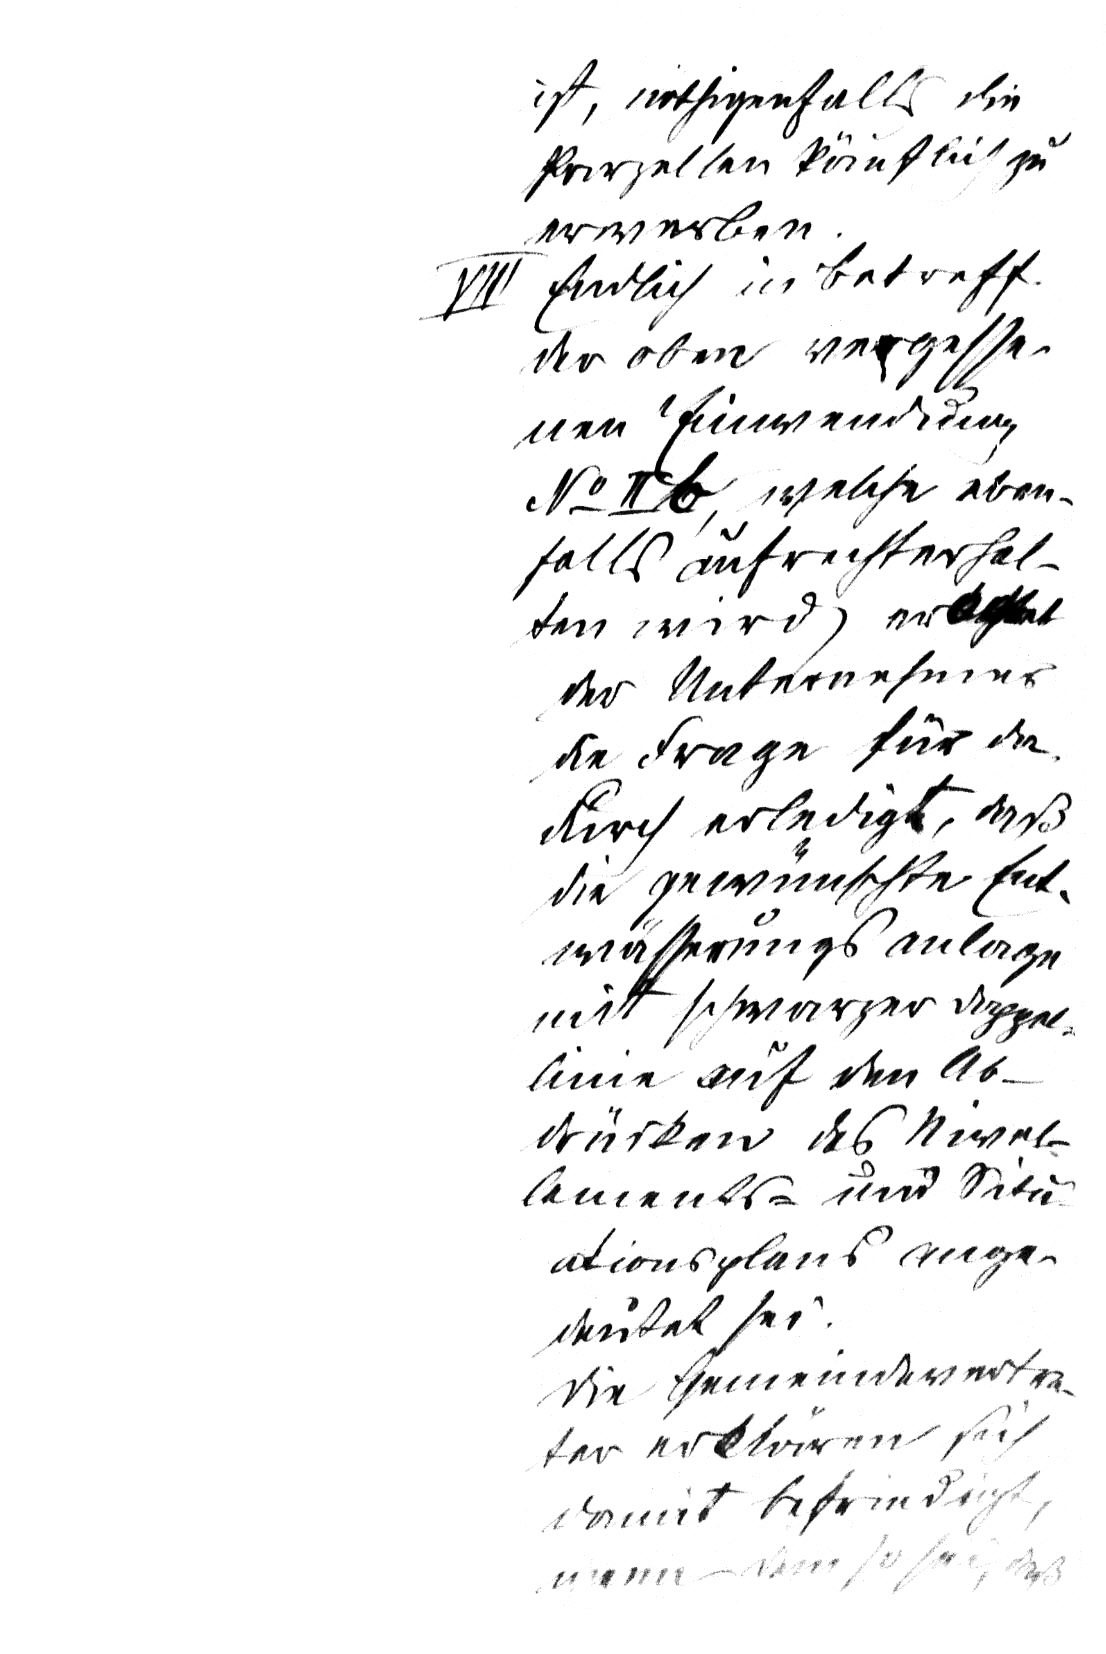 ist, nöthigenfalls die
Parzellen käuflich zu
erwerben.
VIII Endlich in betreff
der oben vergesse-
nen Einwendung
No IIb, welche eben-
falls aufrechterhal-
ten wird,
der Unternehmer
die Frage für da-
durch erledigt, daß
die gewünschte Ent-
wässerungsanlage
mit schwarzer Doppel-
linie auf den Ab-
drücken des Nivel-
lements- und Situ-
ationsplans ange-
deutet sei.
Die Gemeindevertre-
ter erklären sich
damit befriedigt,
wenn dem so sei, daß